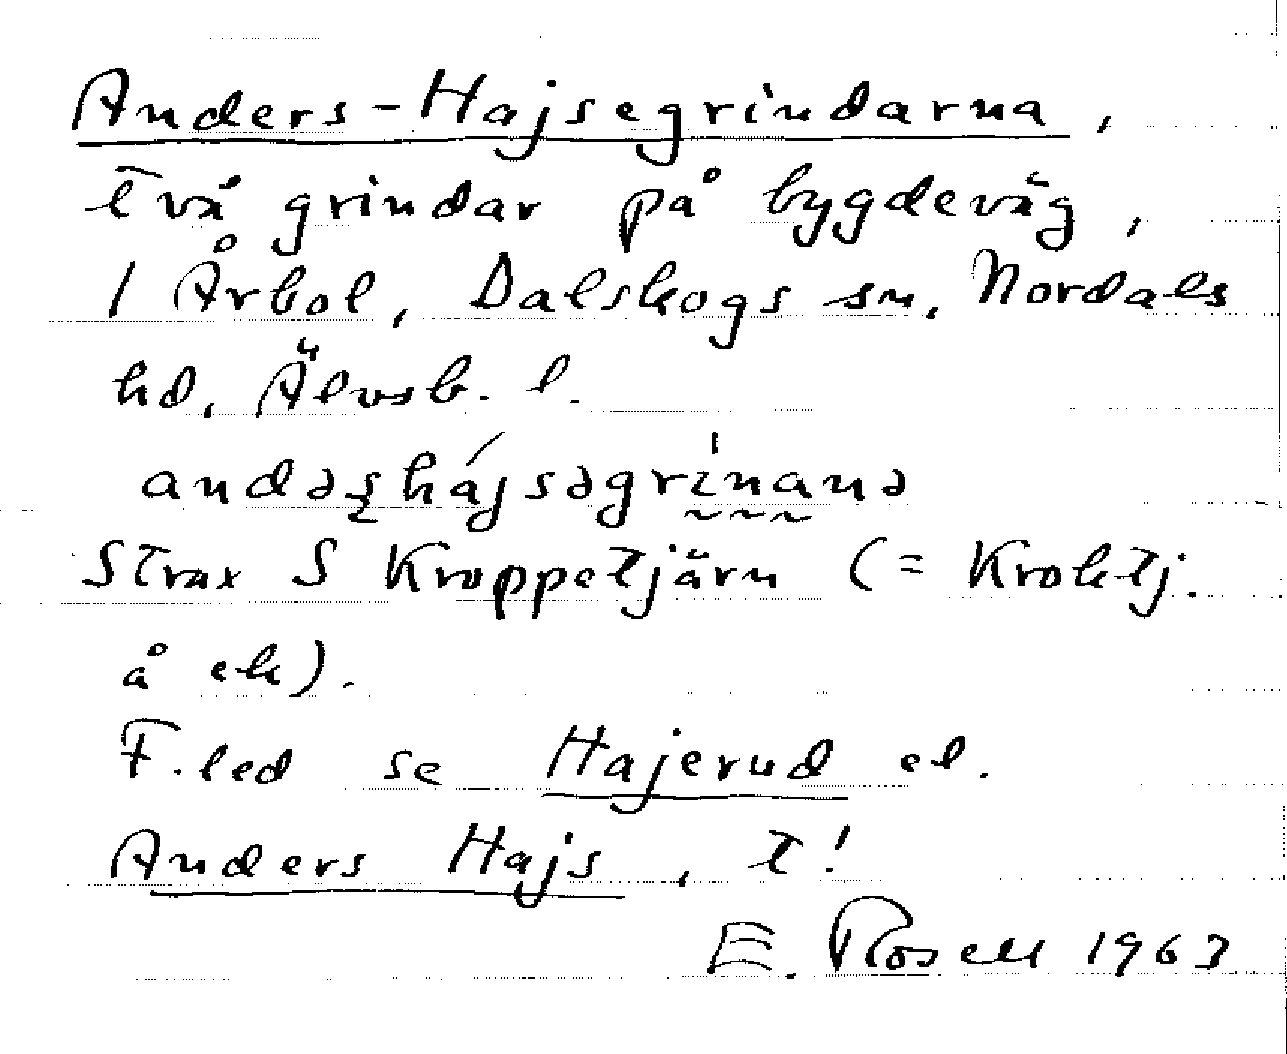 Anders-Hajsegrindarna,
två grindar på bygdeväg,
1 Årbol, Dalskogs sn, Nordals
hd, Älvsb. l.
andəʂhájsəgrìnanə
Strax S Kroppetjärn (= Kroktj.
å ek).
F.led se Hajerud el.
Anders Hajs, t!
E. Rosell 1963